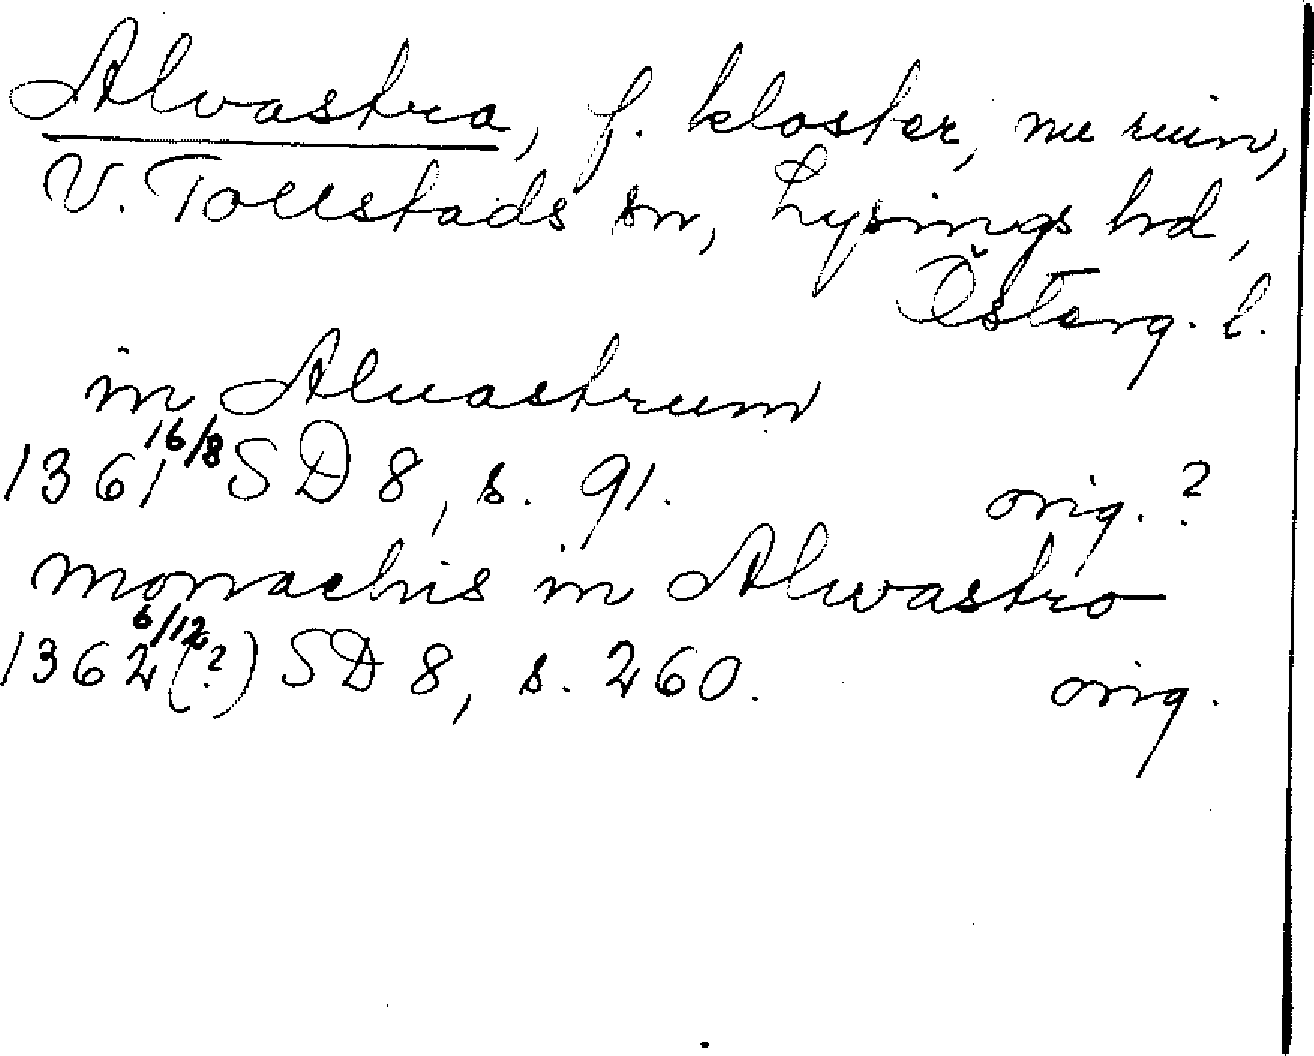 Alvastra, f. kloster, nu ruin,
V. Tollstads sn, Lysings hd,
Österg. l.
in Aluastrum
1361 16/8 SD 8, s. 91. orig. ?
monachis in Alwastro
1362 6/12 (?) SD 8, s. 260. orig.